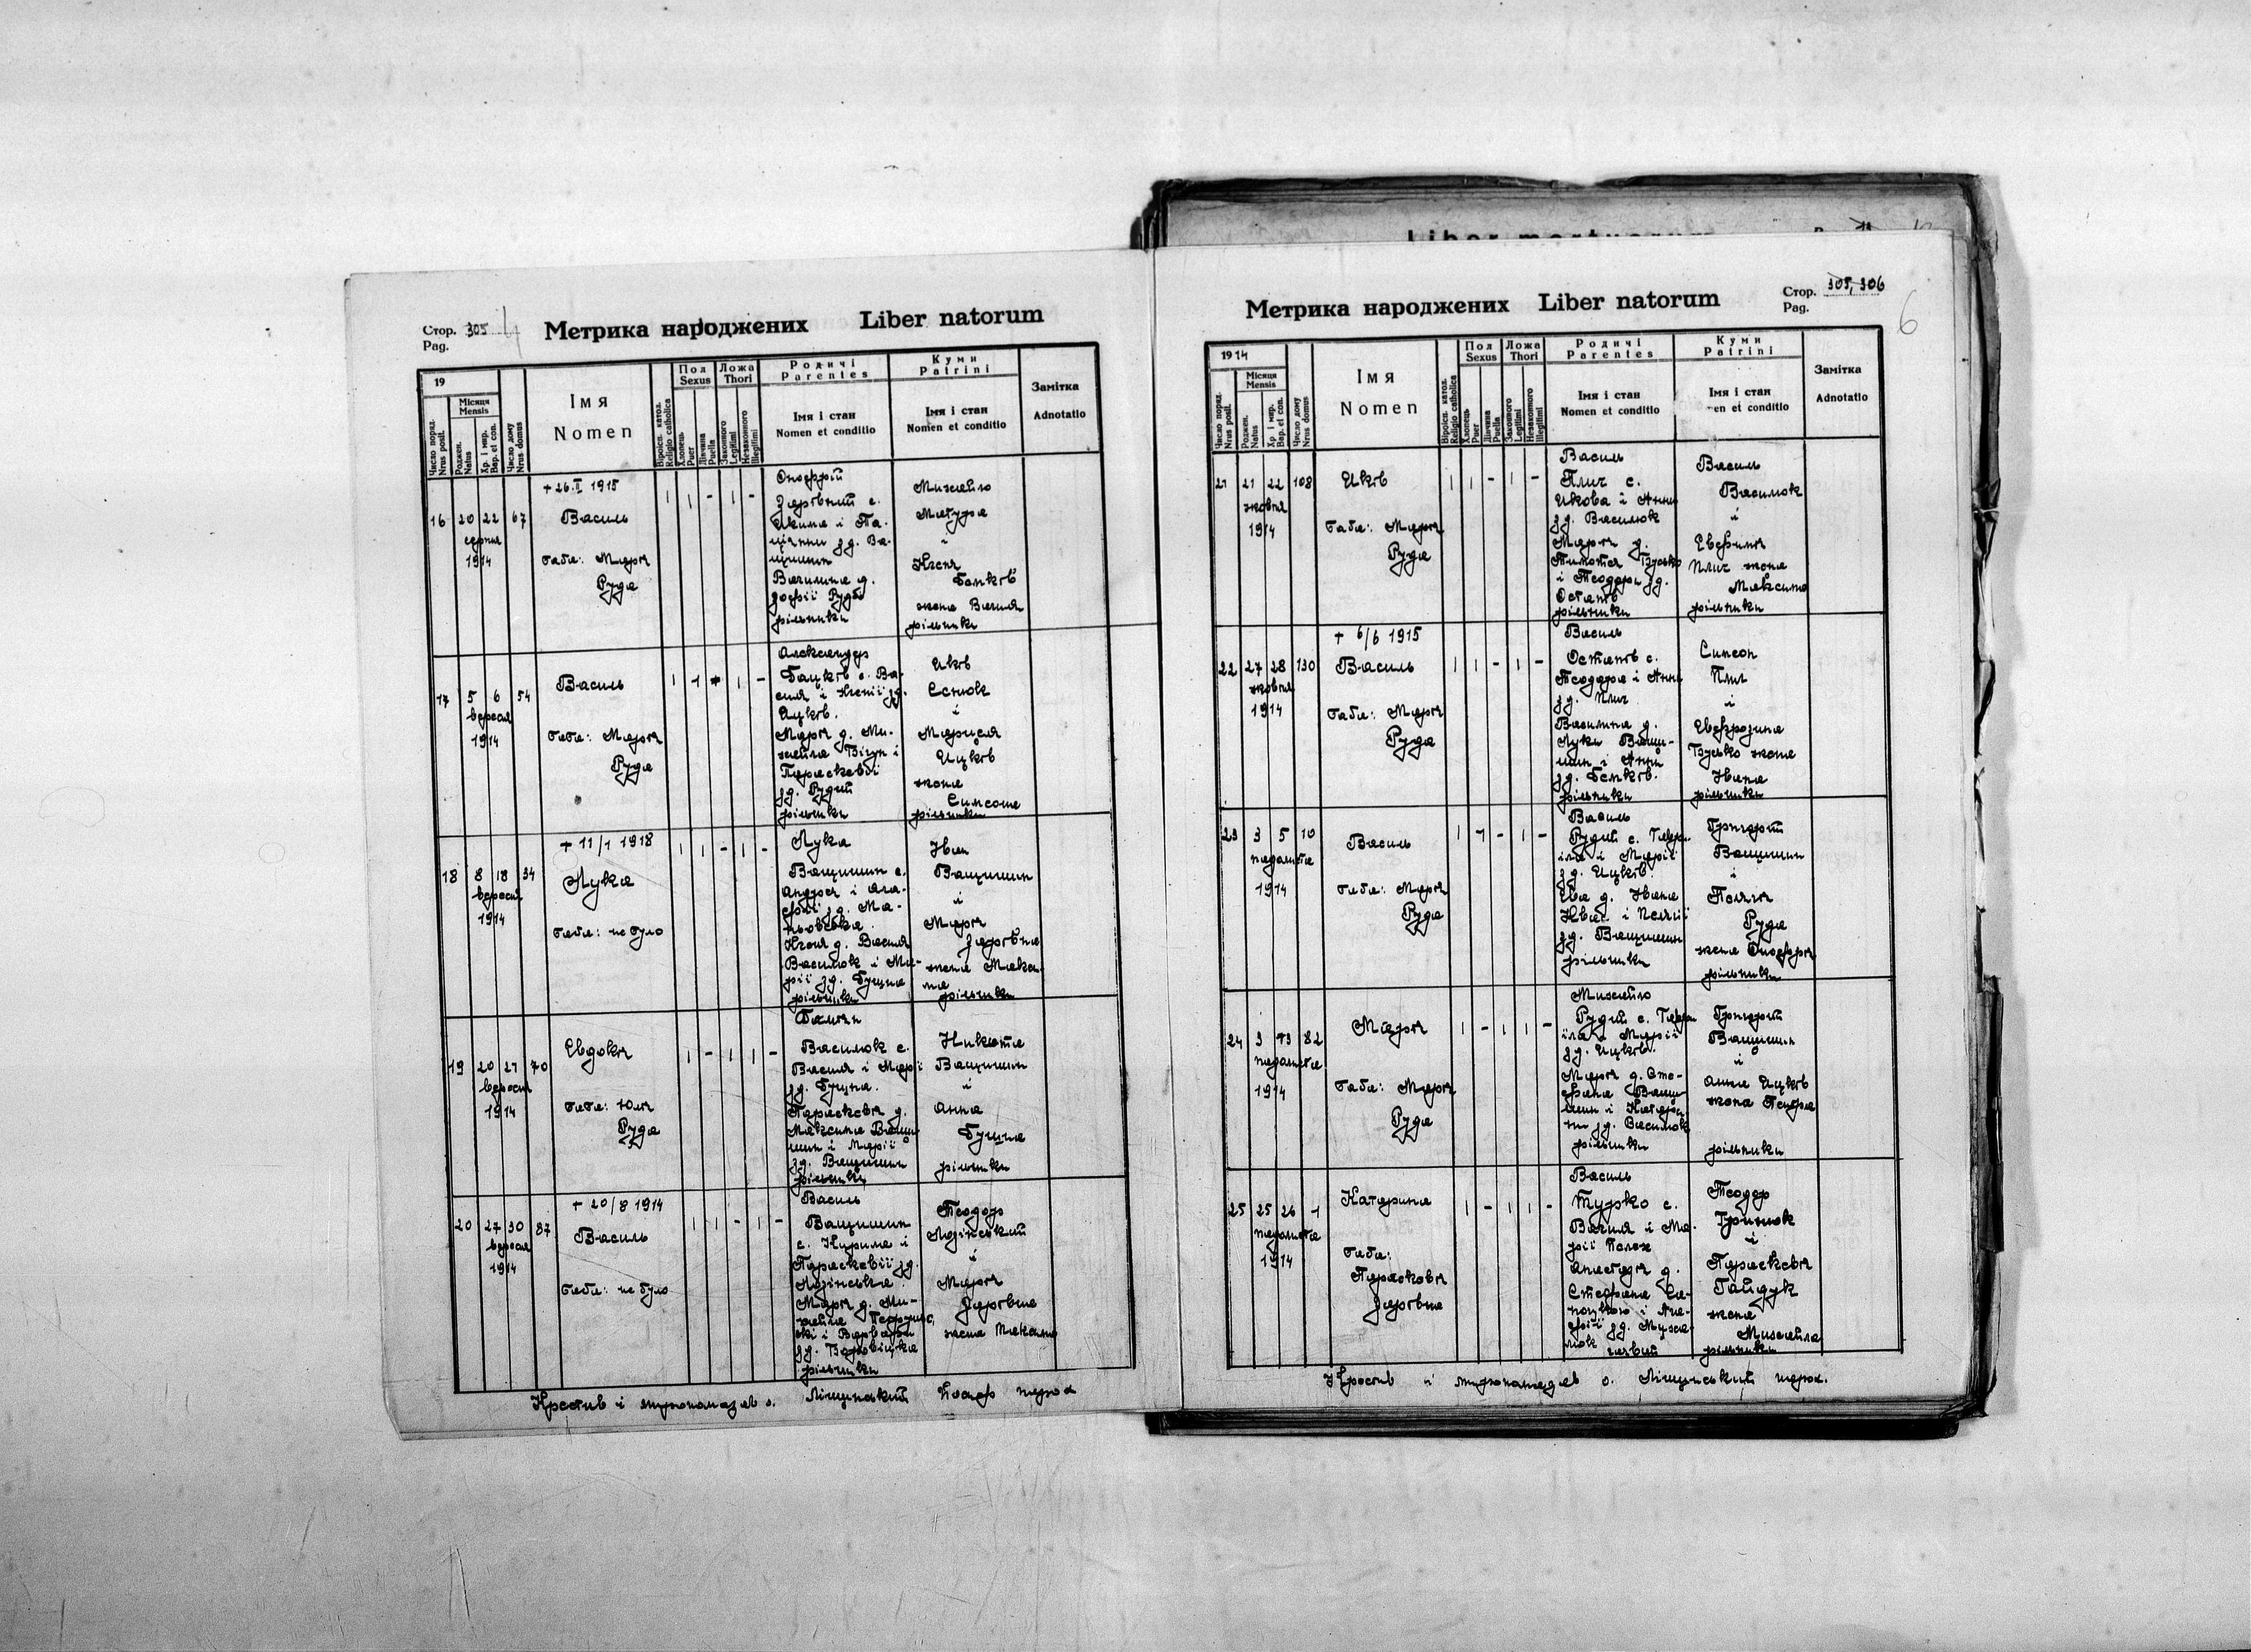 Liber mortuorum
Стор. 305
Pag.
Метрика народжених Liber natorum
19
Число поряд.
Nrus posit.
Місяця
Mensis
Роджен.
Natus
Хр. і мир.
Bap. et con.
Число дому
Nrus domus
Імя
Nomen
Віроісп. катол.
Religio catholica
Пол
Sexus
Хлопець
Puer
Дівчина
Puella
Ложа
Thori
Законного
Legitimi
Незаконного
Illegitimi
Родичі
Parentes
Імя і стан
Nomen et conditio
Куми
Patrini
Імя і стан
Nomen et conditio
Замітка
Adnotatio
16 20 22 67
серпня
1914
+ 26.II 1915
Василь
баба: Марія
Руда
1 1 - 1 -
Онофрій
с.
Якима і
зд. Ва-
щишин
Василина д.
Рудої
рільники
Михайло
Мацура
і
Ксеня
жона Василя
рільники
17 5 6 54
вересня
1914
Василь
баба: Марія
Руда
Александер
Бацків с. Ва-
силя і Ксенії зд.
Яцків.
Марія д. Ми-
хайла Вігун і
Параскевії
зд. Рудий
рільники
Яків
Єснюк
і
Марися
Яцків
жона
Симеона
рільники
18 8 18 34
вересня
1914
+ 11/1 1918
Лука
баба: не було
1 1 - 1 -
Лука
Ващишин с.
Андрея і Ага-
фії зд. Ма-
Ксеня д. Василя
Василюк і Ма-
рії зд. Буцна
рільники
Іван
Ващишин
і
Марія
жона Макси-
ма
рільники
19 20 21 70
вересня
1914
Евдокія
баба: Юлія
Руда
1 - 1 1 -
Василюк с.
Василя і Марії
зд. Буцна.
Параскевія д.
Максима Ващи-
шин і Марії
зд. Ващишин
рільники
Никита
Ващишин
і
Анна
Буцна
рільники
20 27 30 87
вересня
1914
+ 20/8 1914
Василь
баба: не було
1 1 - 1 -
Василь
Ващишин
с. Кирила і
Параскевії зд.
Лозінська.
Марія д. Ми-
хайла
і Варвари
зд.
рільники
Теодор
Лозінський
і
Марія
жона Максима
Крестив і миропомазав о. Ліщинський Йосиф парох
Стор. 305, 306
Pag.
6
Метрика народжених Liber natorum
1914
Число поряд.
Nrus posit.
Місяця
Mensis
Роджен.
Natus
Хр. і мир.
Bap. et con.
Число дому
Nrus domus
Імя
Nomen
Віроісп. катол.
Religio catholica
Пол
Sexus
Хлопець
Puer
Дівчина
Puella
Ложа
Thori
Законного
Legitimi
Незаконного
Illegitimi
Родичі
Parentes
Імя і стан
Nomen et conditio
Куми
Patrini
Імя і стан
en et conditio
Замітка
Adnotatio
21 21 22 108
жовтня
1914
Яків
баба: Марія
Руда
1 1 - 1 -
Василь
Плич с.
Якова і Анни
зд. Василюк
Марія д.
Тимотея Бусько
і Теодори зд.
Остапів
рільники
Василь
Василюк
і
Евфимія
Плич жона
Максима
рільники
22 27 28 130
жовтня
1914
+ 6/6 1915
Василь
баба: Марія
Руда
1 1 - 1 -
Василь
Остапів с.
Теодора і Анни
зд. Плич
Василина д.
Луки Ващи-
шин і Анни
зд.
рільники
Симеон
Плич
і
Евфрозина
Бусько жона
Івана
рільники
23 3 5 10
падолиста
1914
Василь
баба: Марія
Руда
1 1 - 1 -
Василь
Рудий с. Гаври-
іла і Марії
зд. Яцків.
Ева д. Івана
Івас і Пелягії
зд. Ващишин
рільники
Григорій
Ващишин
і
Пелягія
Руда
жона Онофрія
рільники
24 9 13 82
падолиста
1914
Марія
баба: Марія
Руда
1 - 1 1 -
Михайло
Рудий с. Гаври-
іла і Марії
зд. Яцків.
Марія д. Сте-
фана Ващи-
шин і Катари-
ни зд. Василюк
рільники
Григорій
Ващишин
і
Анна Яцків
жона Петра
рільники
25 25 26 1
падолиста
1914
Катерина
баба:
Параскевія
1 - 1 1 -
Василь
Турко с.
Василя і Ма-
рії Полох
Анастазія д.
Стефана
зд.
Теодор
Гринюк
і
Параскевія
Гайдук
жона
Михайла
рільники
Крестив і миропомазав о. Ліщинський парох.